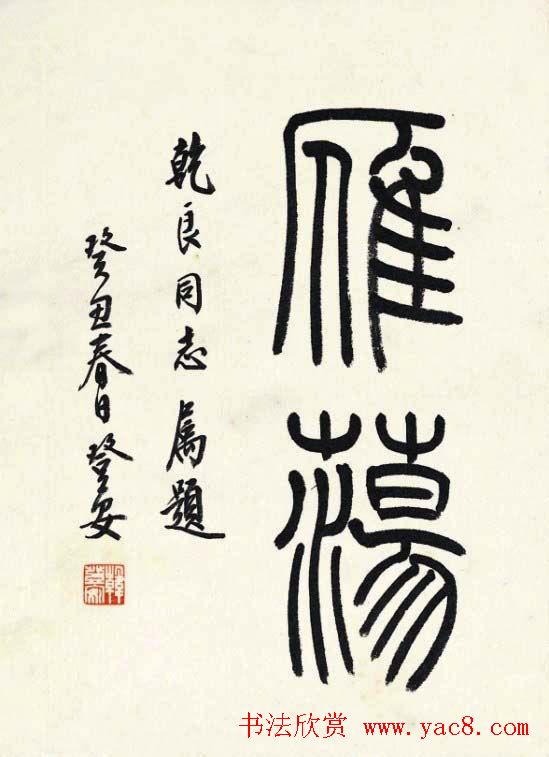 雁蕩
乾良同志属題
癸丑春日登安
韓登安
书法欣赏 www.yac8.com